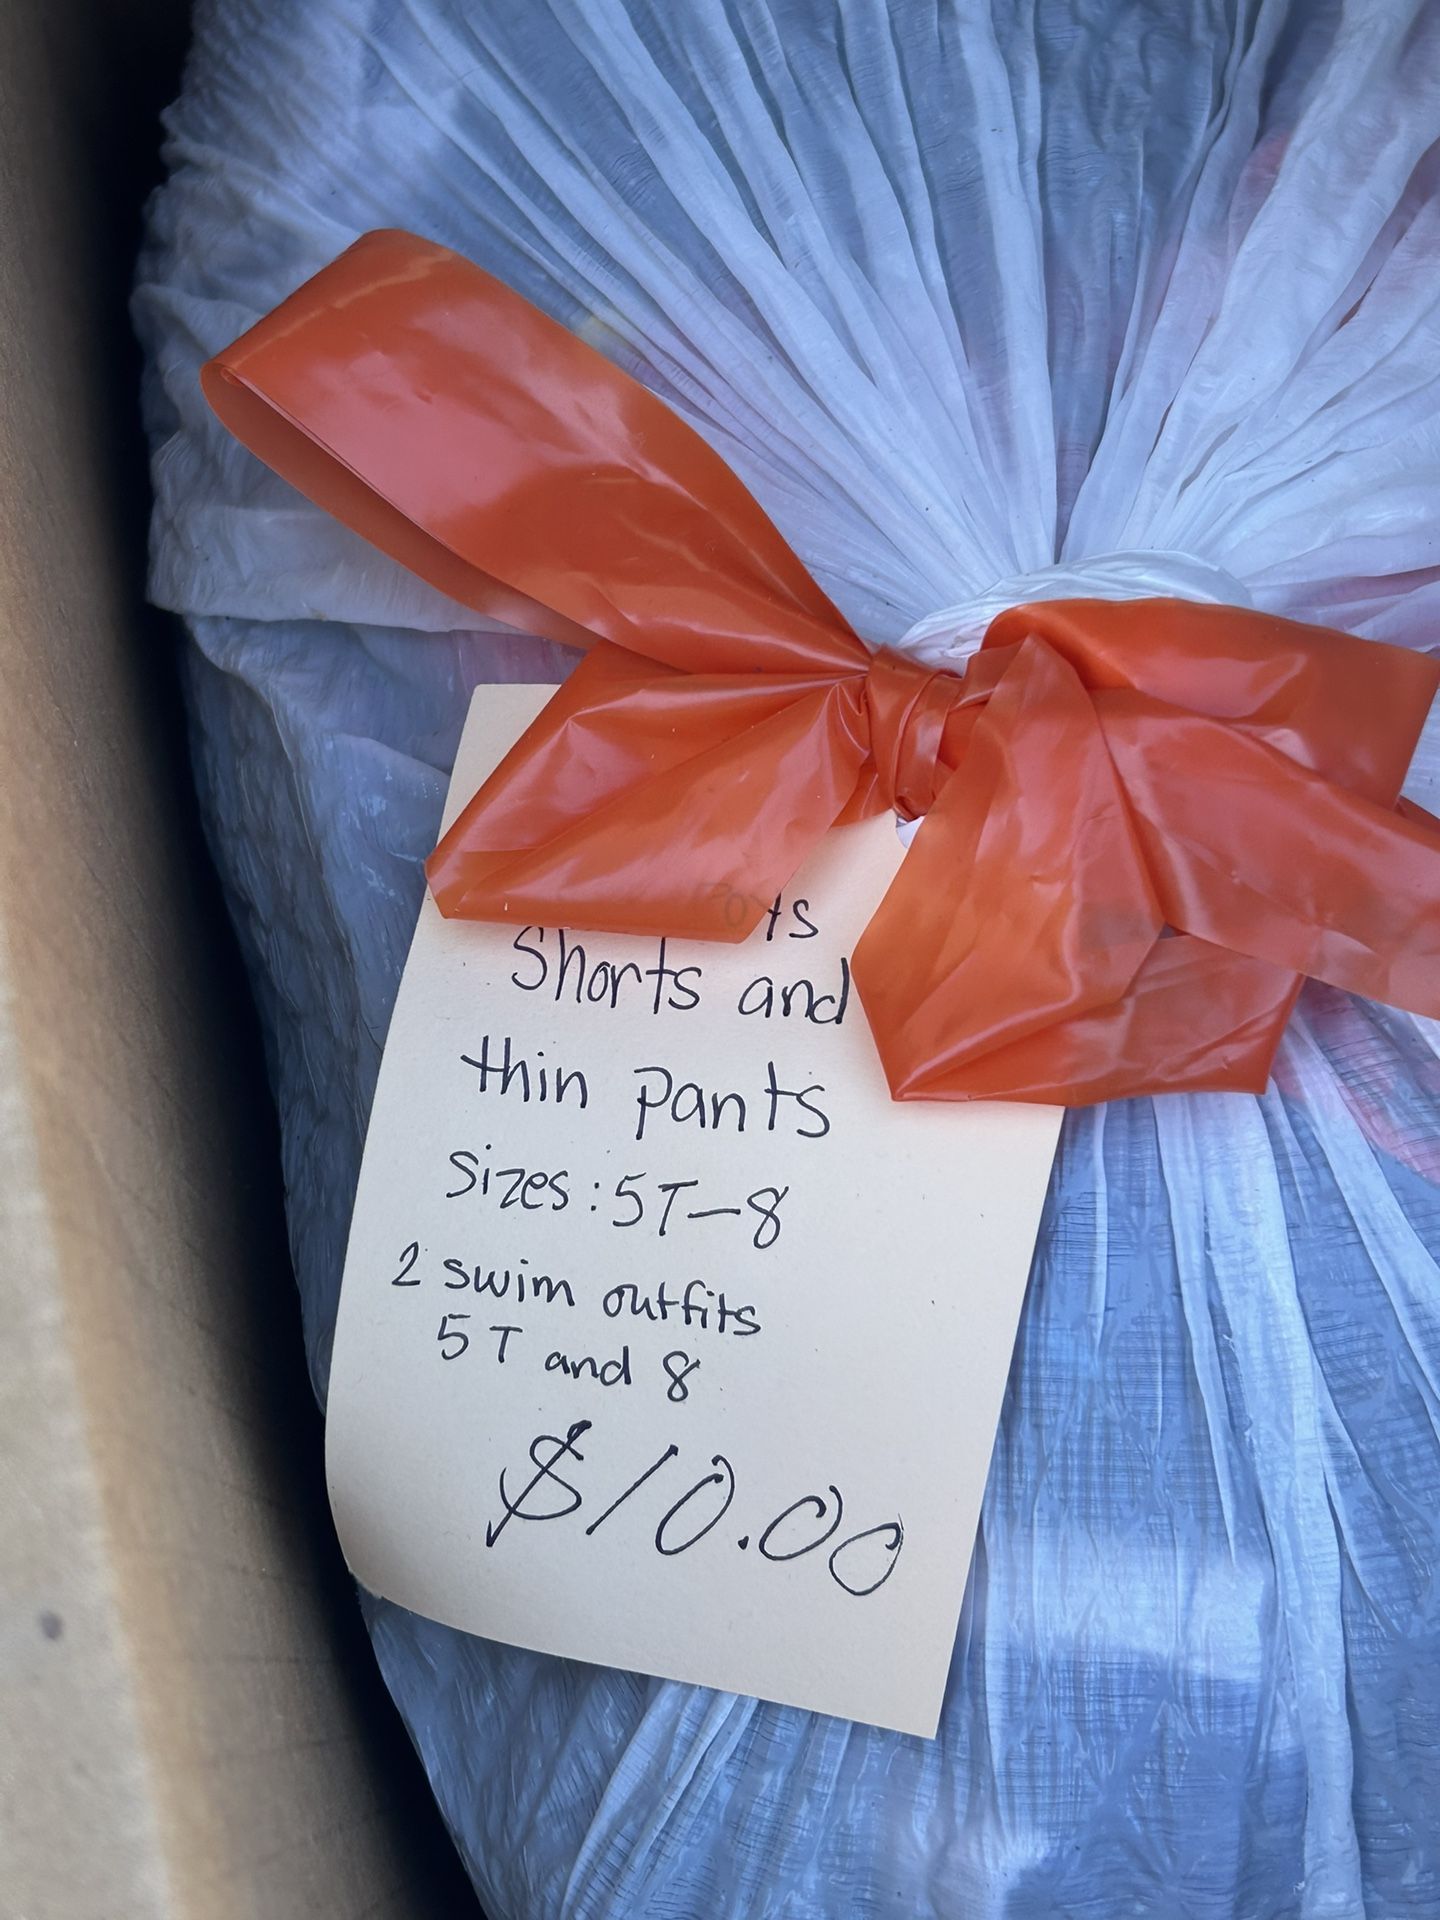 Shorts and
thin pants
sizes: 5T-8
2 swim outfits
5T and 8
$10.00